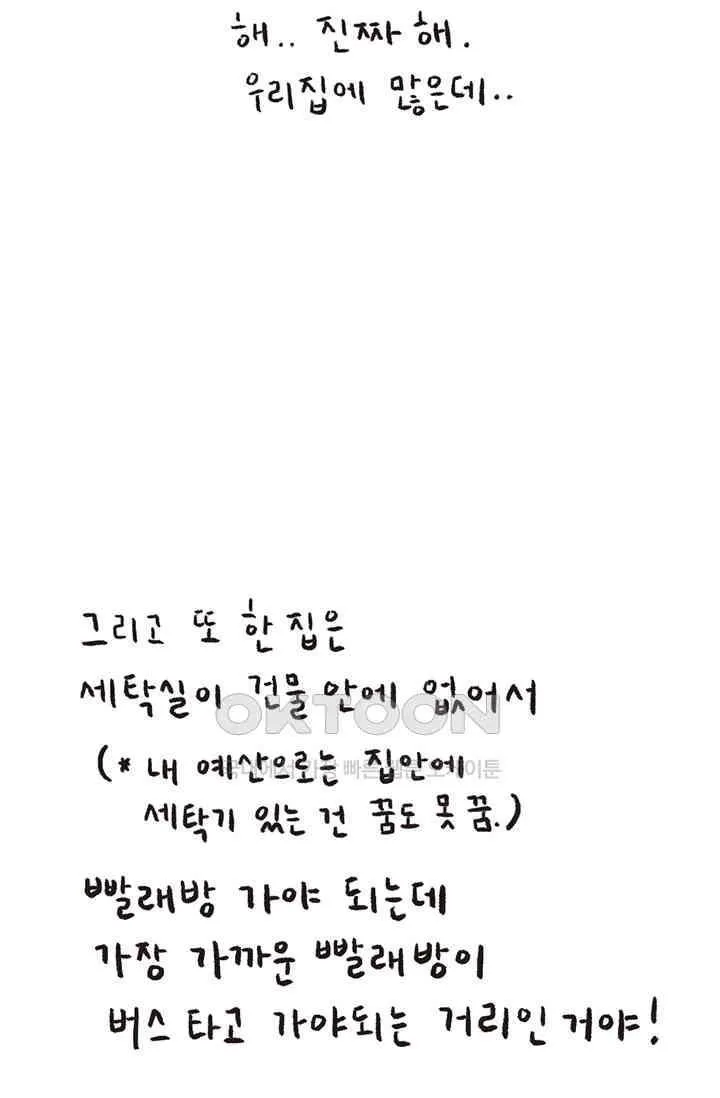 해.. 진짜 해.
우리집에 많은데..
그리고 또 한 집은
세탁실이 건물 안에 없어서
OKTOON
(* 내 예산으로는 집안에
국내에서 가장 빠른 웹툰 오케이툰
세탁기 있는 건 꿈도 못 꿈.)
빨래방 가야 되는데
가장 가까운 빨래방이
버스 타고 가야되는 거리인 거야!